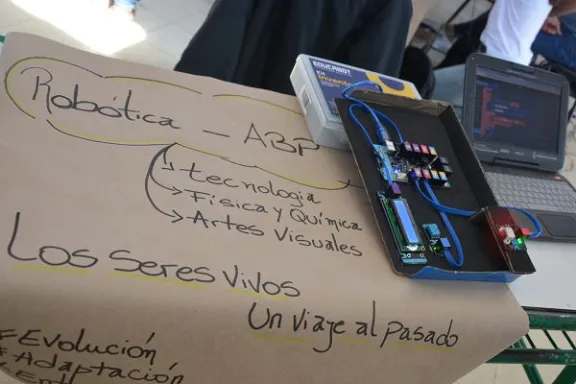 Robótica - ABP
tecnologia
Física y Química
Artes Visuales
Los seres vivos
Un viaje al pasado
#Evolución
*Adaptación
EDUCABOT